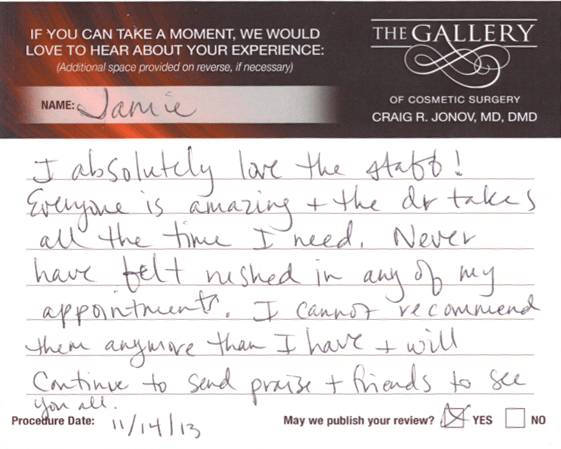 IF YOU CAN TAKE A MOMENT, WE WOULD
LOVE TO HEAR ABOUT YOUR EXPERIENCE:
(Additional space provided on reverse, if necessary)
NAME: Jamie
THE GALLERY
OF COSMETIC SURGERY
CRAIG R. JONOV, MD, DMD
I absolutely love the staff!
Everyone is amazing + the dr takes
all the time I need. Never
have felt rushed in any of my
appointments. I cannot recommend
them anymore than I have + will
Continue to send praise + friends to see
you all.
Procedure Date: 11/14/13
May we publish your review? YES NO